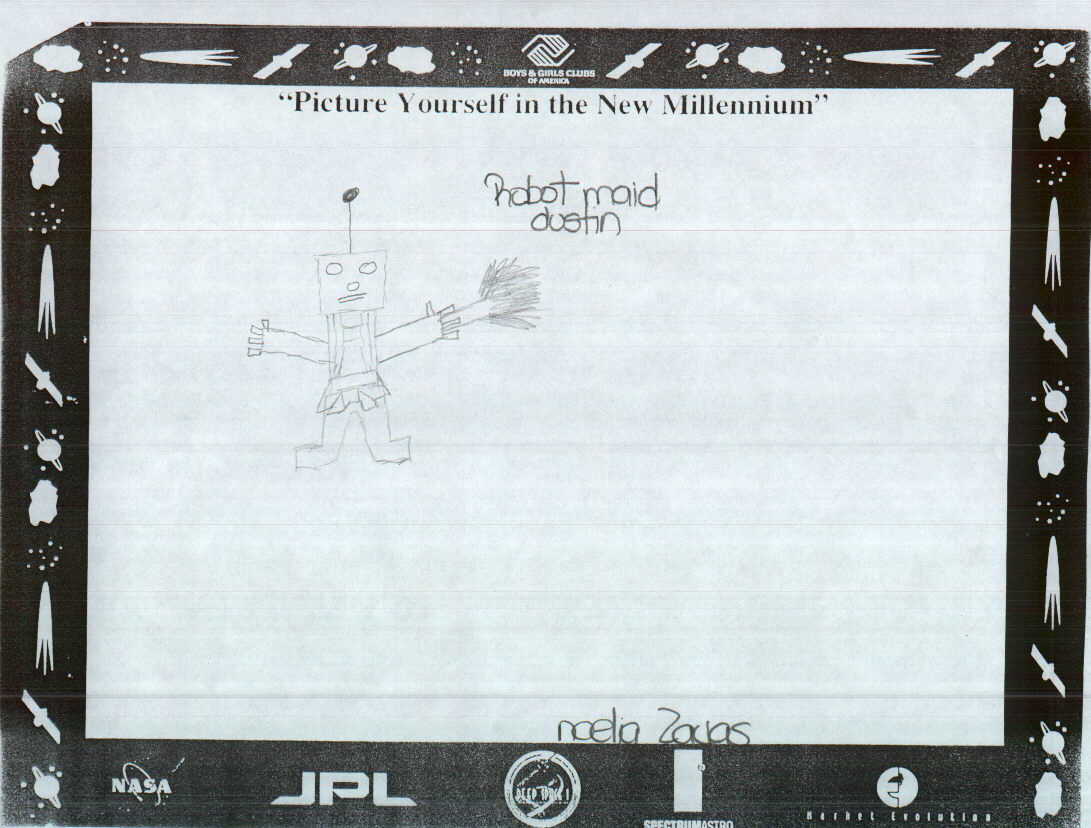 BOYS & GIRLS CLUBS
OF AMERICA
“Picture Yourself in the New Millennium”
Robot maid
dustin
noelia Zacias
NASA
JPL
DEEP SPACE 1
SPECTRUMASTRO
Market Evolution